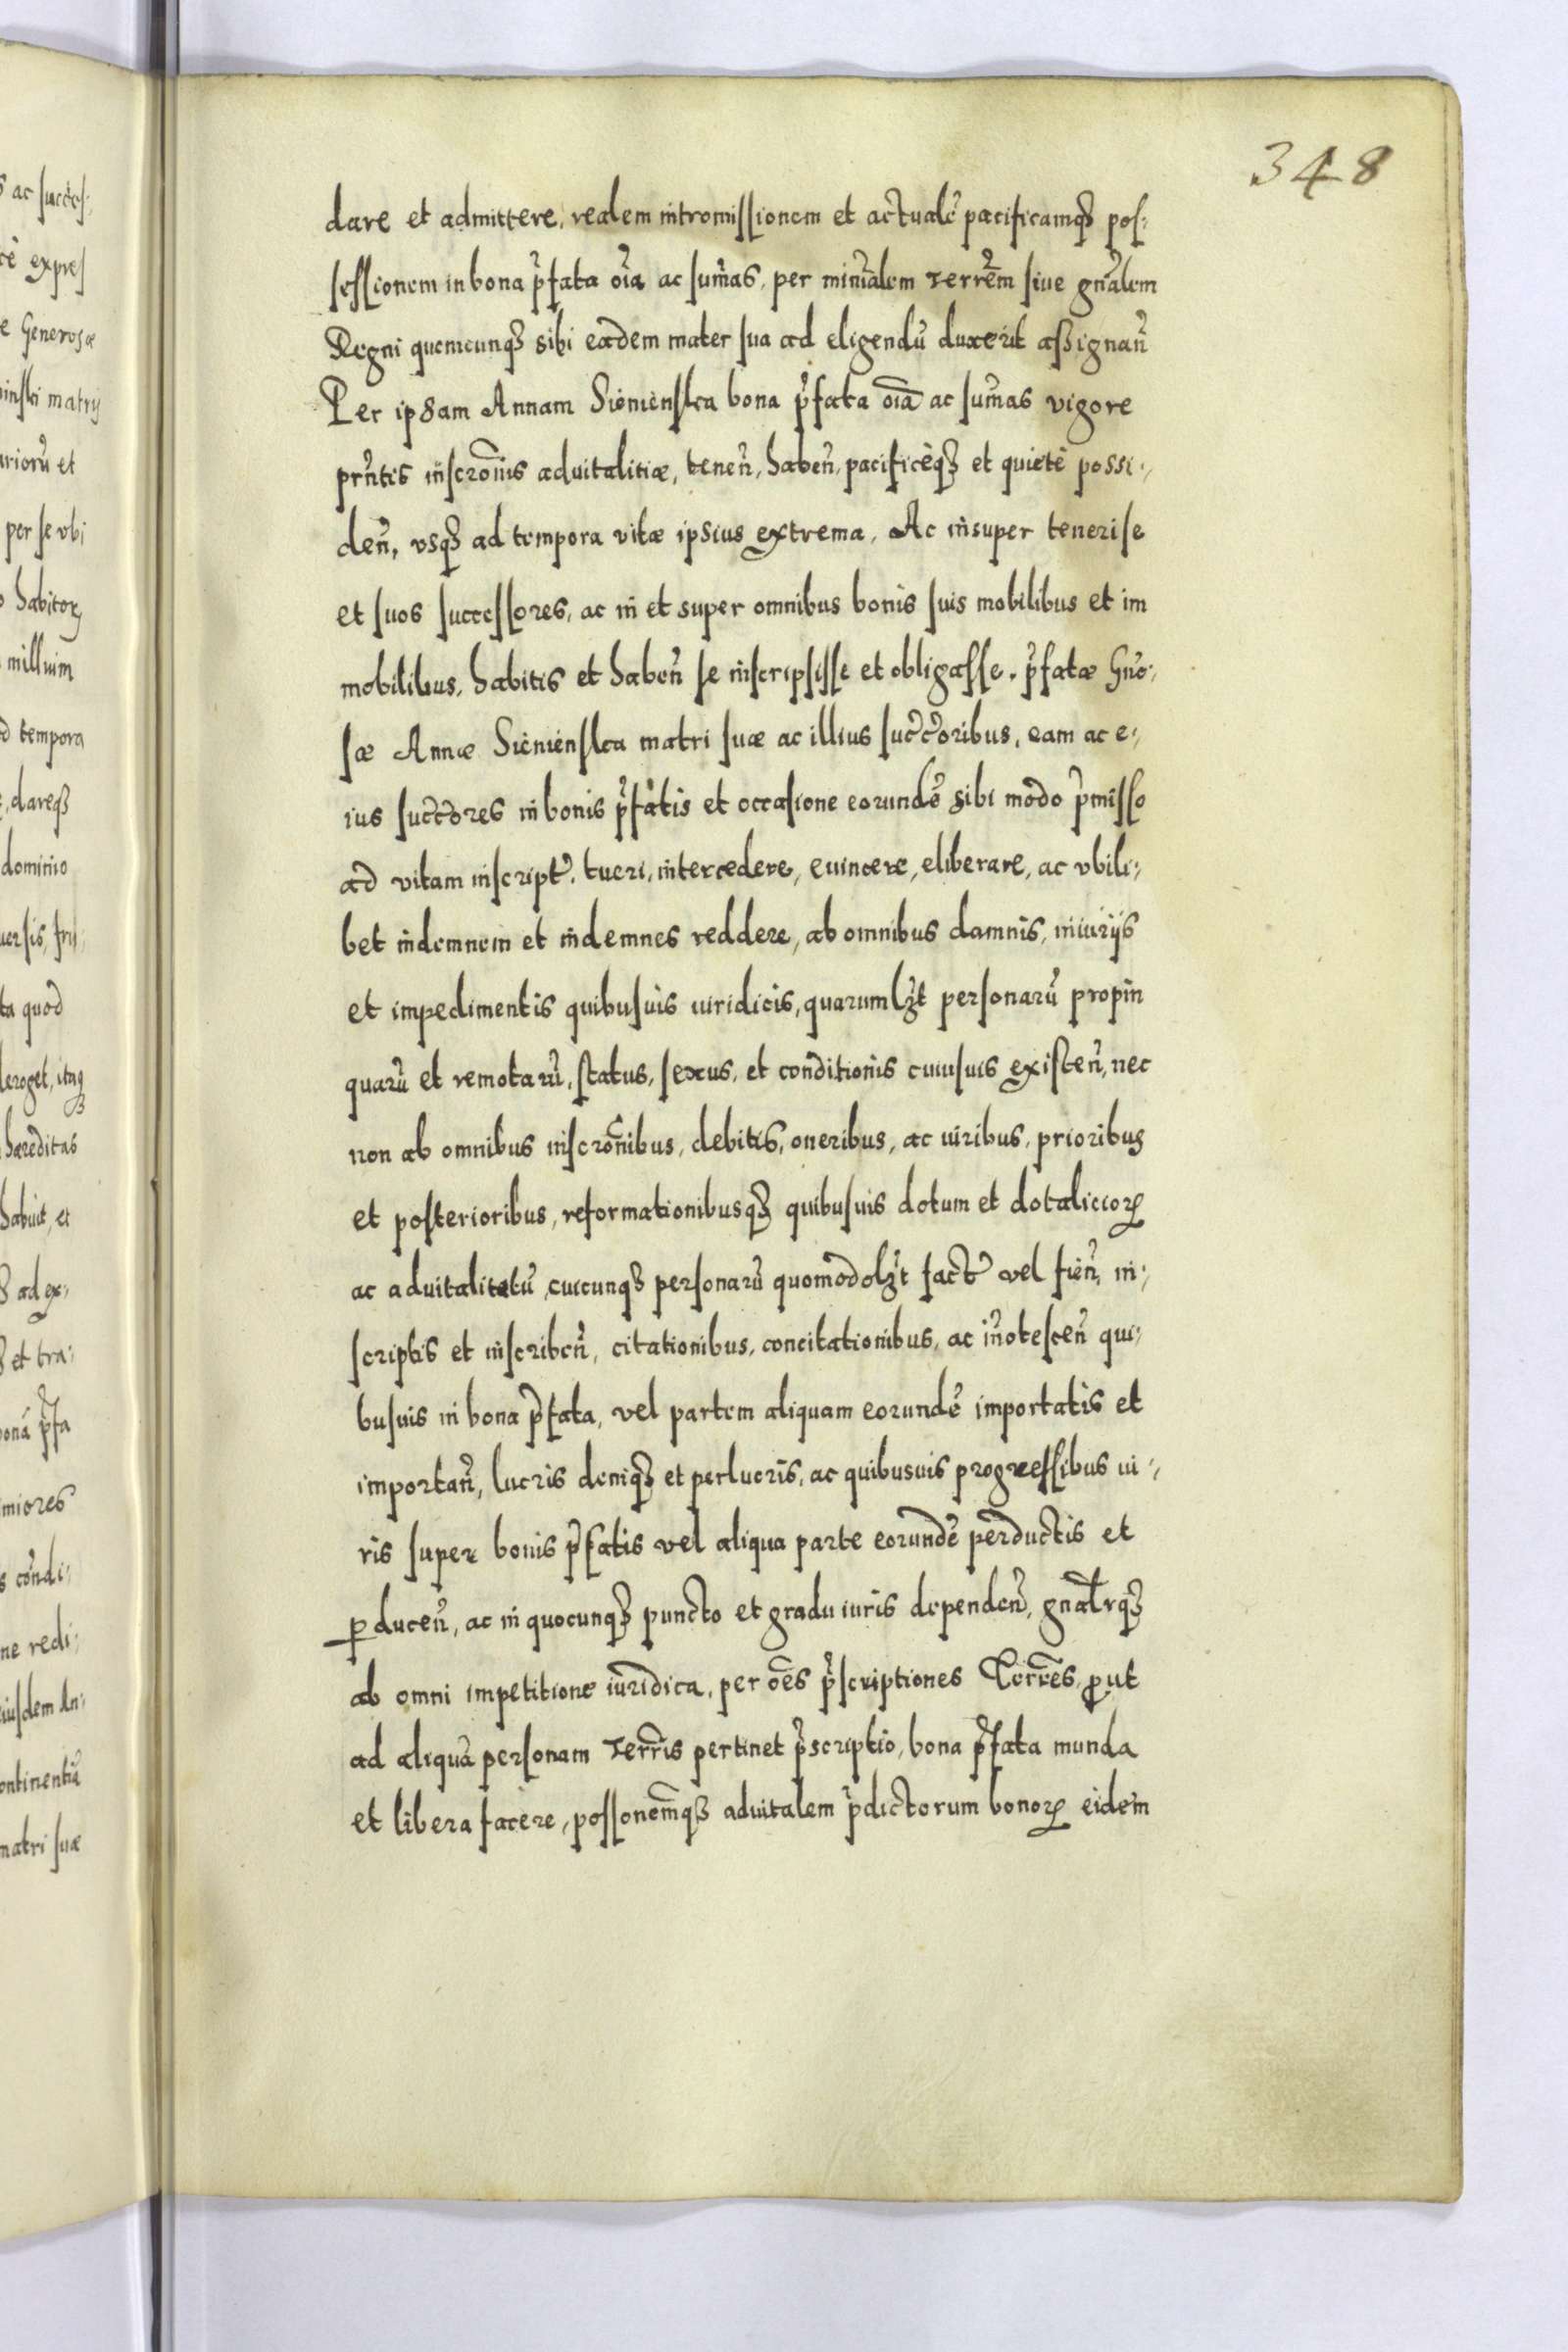 348
dare et admittere, realem intromissionem et actualẽ pacificamq₃ pos:
sessionem in bona p̃fata oĩa ac sum̃as, per minĩalem terrẽm siue gñalem
Regni quemcunq₃ sibi eadem mater sua ad eligendũ duxerit assignañ
Per ipsam Annam Sienienska bona p̃fata oĩa ac sum̃as vigore
prñtis inscrõnis aduitalitiæ, teneñ, habeñ, pacificèq₃ et quietè possi:
deñ, vsq₃ ad tempora vitæ ipsius extrema, Ac insuper teneri se
et suos successores, ac in et super omnibus bonis suis mobilibus et im
mobilibus, habitis et habeñ se inscripsisse et obligasse, p̃fatæ Gño:
sæ Annæ Sienienska matri suæ ac illius succ̃toribus, eam ac e:
ius succ̃tores in bonis p̃fatis et occasione eorundẽ sibi modo p̃misso
ad vitam inscript̃, tueri, intercedere, euincere, eliberare, ac vbili:
bet indemnem et indemnes reddere, ab omnibus damnis, iniurijs
et impedimentis quibusuis iuridicis, quarumlꝫt personarũ propin
quarũ et remotarũ, status, sexus, et conditionis cuiusuis existeñ, nec
non ab omnibus inscrõnibus, debitis, oneribus, ac iuribus, prioribus
et posterioribus, reformationibusq₃ quibusuis dotum et dotalicioꝝ
ac aduitalitatũ, cuicunq₃ personarũ quomodolꝫt fact̃ vel fieñ, in:
scriptis et inscribeñ, citationibus, concitationibus, ac iñotesceñ qui:
busuis in bona p̃fata, vel partem aliquam eorundẽ importatis et
importañ, lucris deniq₃ et perlucris, ac quibusuis progressibus iu:
ris super bonis p̃fatis vel aliqua parte eorundẽ perductis et
ꝑduceñ, ac in quocunq₃ puncto et gradu iuris dependeñ, gñalrq₃
ab omni impetitione iuridica, per oẽs p̃scriptiones Terrẽs, ꝓut
ad aliquã personam terrĩs pertinet p̃scriptio, bona p̃fata munda
et libera facere, possonem̃q₃ aduitalem p̃dictorum bonoꝝ eidem